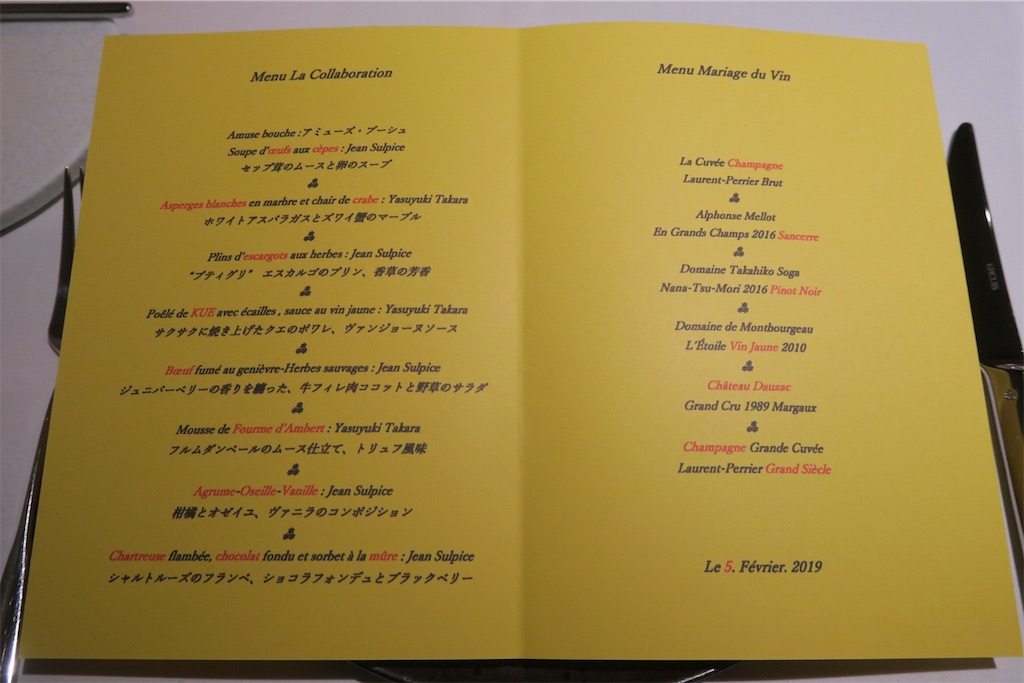 Menu La Collaboration
Amuse bouche :アミューズ・ブーシュ
Soupe d'œufs aux cèpes : Jean Sulpice
セップ茸のムースと卵のスープ
Asperges blanches en marbre et chair de crabe : Yasuyuki Takara
ホワイトアスパラガスとズワイ蟹のマーブル
Plins d'escargots aux herbes : Jean Sulpice
"プティグリ" エスカルゴのプリン、香草の芳香
Poêlé de KUE avec écailles , sauce au vin jaune : Yasuyuki Takara
サクサクに焼き上げたクエのポワレ、ヴァンジョーヌソース
Bœuf fumé au genièvre-Herbes sauvages : Jean Sulpice
ジュニパーベリーの香りを纏った、牛フィレ肉ココットと野草のサラダ
Mousse de Fourme d'Ambert : Yasuyuki Takara
フルムダンベールのムース仕立て、トリュフ風味
Agrume-Oseille-Vanille : Jean Sulpice
柑橘とオゼイユ、ヴァニラのコンポジション
Chartreuse flambée, chocolat fondu et sorbet à la mûre : Jean Sulpice
シャルトルーズのフランベ、ショコラフォンデュとブラックベリー
Menu Mariage du Vin
La Cuvée Champagne
Laurent-Perrier Brut
Alphonse Mellot
En Grands Champs 2016 Sancerre
Domaine Takahiko Soga
Nana-Tsu-Mori 2016 Pinot Noir
Domaine de Montbourgeau
L'Étoile Vin Jaune 2010
Château Dauzac
Grand Cru 1989 Margaux
Champagne Grande Cuvée
Laurent-Perrier Grand Siècle
Le 5. Février. 2019